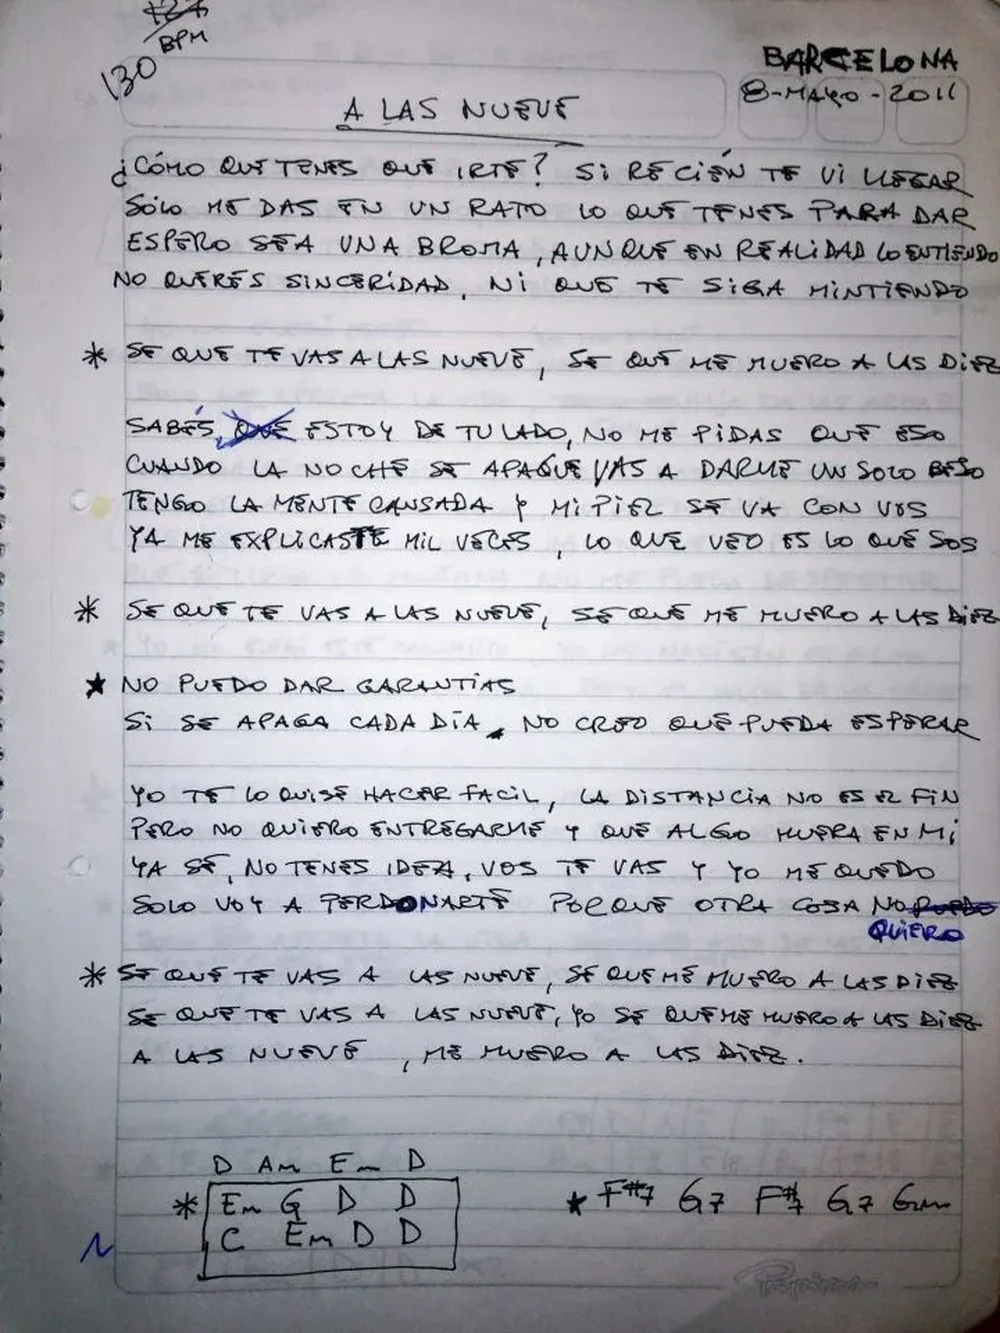 BPM
130
BARCELONA
8-MAYO-2011
A LAS NUEVE
¿CÓMO QUE TENES QUE IRTE? SI RECIÉN TE VI LLEGAR
SÓLO ME DAS EN UN RATO LO QUE TENES PARA DAR
ESPERO SEA UNA BROMA, AUNQUE EN REALIDAD LO ENTIENDO
NO QUERÉS SINCERIDAD, NI QUE TE SIGA MINTIENDO
* SE QUE TE VAS A LAS NUEVE, SE QUE ME MUERO A LAS DIEZ
SABÉS, QUE ESTOY DE TU LADO, NO ME PIDAS QUE ESO
CUANDO LA NOCHE SE APAGUE VAS A DARME UN SOLO BESO
TENGO LA MENTE CANSADA Y MI PIEL SE VA CON VOS
YA ME EXPLICASTE MIL VECES, LO QUE VEO ES LO QUE SOS
* SE QUE TE VAS A LAS NUEVE, SE QUE ME MUERO A LAS DIEZ
★ NO PUEDO DAR GARANTÍAS
SI SE APAGA CADA DÍA, NO CREO QUE PUEDA ESPERAR
YO TE LO QUISE HACER FACIL, LA DISTANCIA NO ES EL FIN
PERO NO QUIERO ENTREGARME Y QUE ALGO MUERA EN MÍ
YA SE, NO TENES IDEA, VOS TE VAS Y YO ME QUEDO
SOLO VOY A PERDONARTE PORQUE OTRA COSA NO PUEDO
QUIERO
* SE QUE TE VAS A LAS NUEVE, SE QUE ME MUERO A LAS DIEZ
SE QUE TE VAS A LAS NUEVE, YO SE QUE ME MUERO A LAS DIEZ
A LAS NUEVE, ME MUERO A LAS DIEZ.
D Am Em D
* Em G D D
C Em D D
★ F#7 G7 F#7 G7 Gm